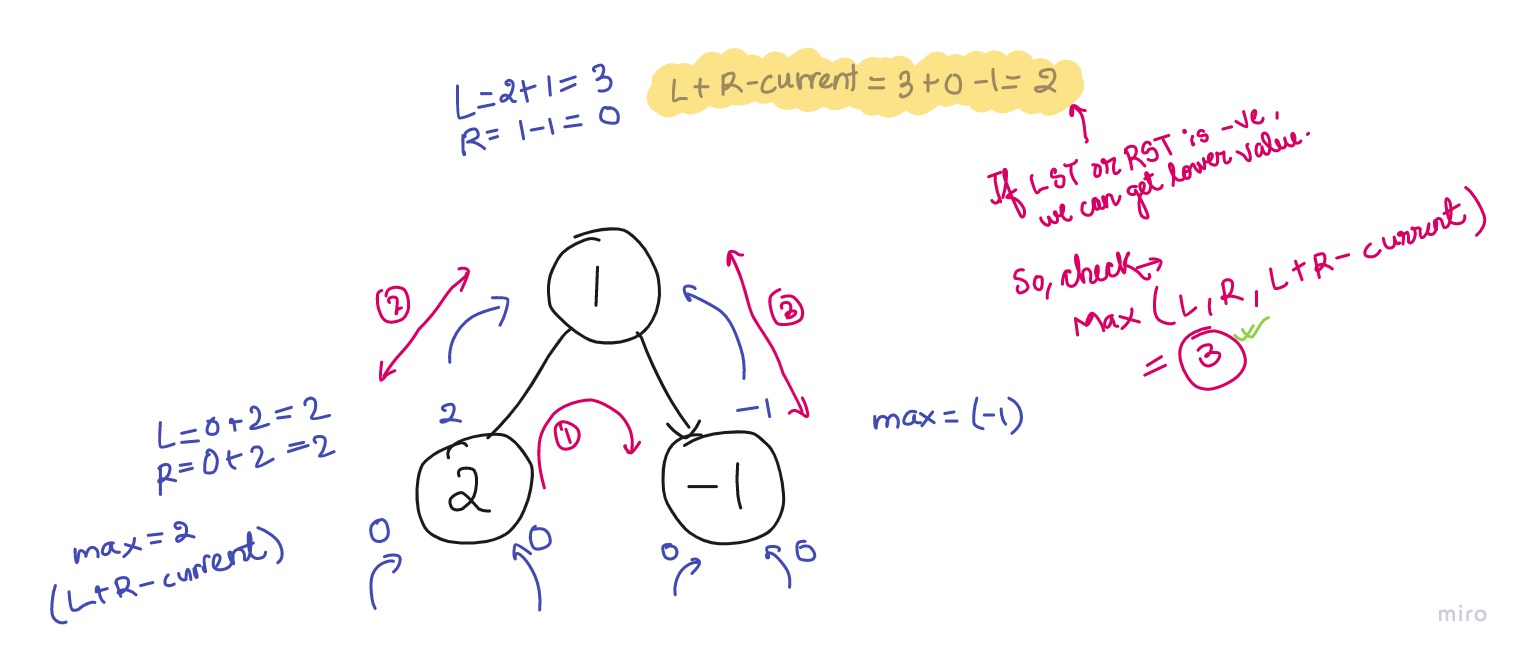 L=2+1=3
R= 1-1= 0
L+R-current = 3+0-1= 2
If LST or RST is -ve,
we can get lower value.
So, check→
Max (L, R, L+R-current)
= 3
1
2
3
2
1
-1
max = (-1)
L=0+2=2
R=0+2=2
2
-1
max=2
(L+R-current)
0
0
0
0
miro